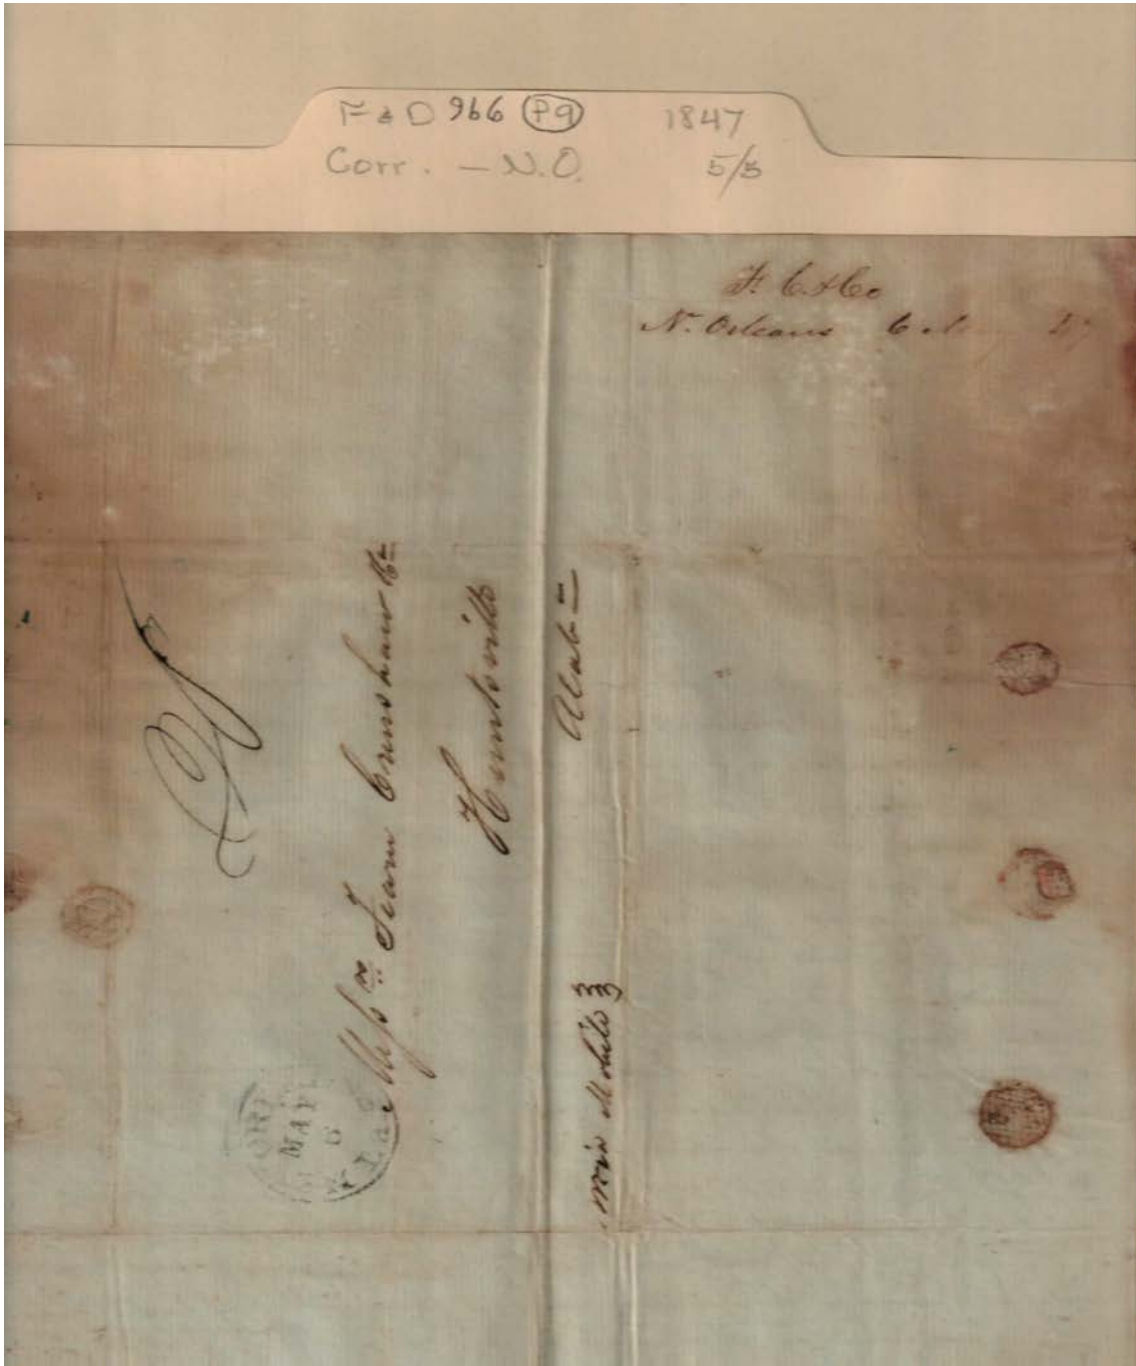 F & D 966 P9 1847
Corr. — N.O. 5/5
F. C. & Co
N. Orleans 6
Messrs Fearn Crenshaw & Co
Huntsville
Alab
via Mobile
MAY
6
La